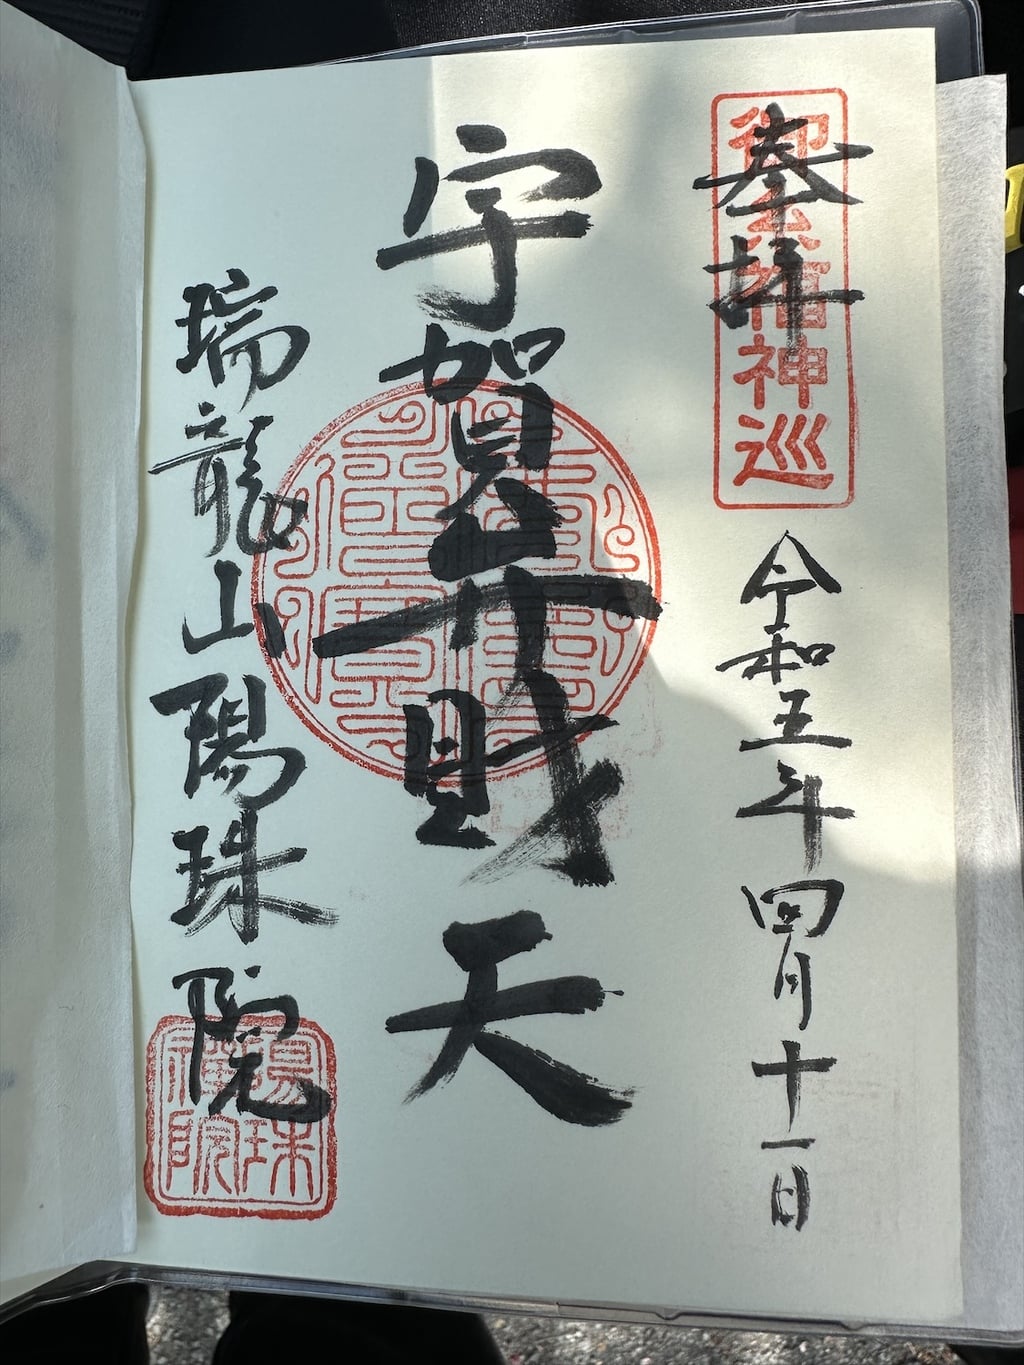 奉拝
福神巡
令和五年四月十一日
宇賀弁財天
瑞龍山陽珠院
陽珠禅院